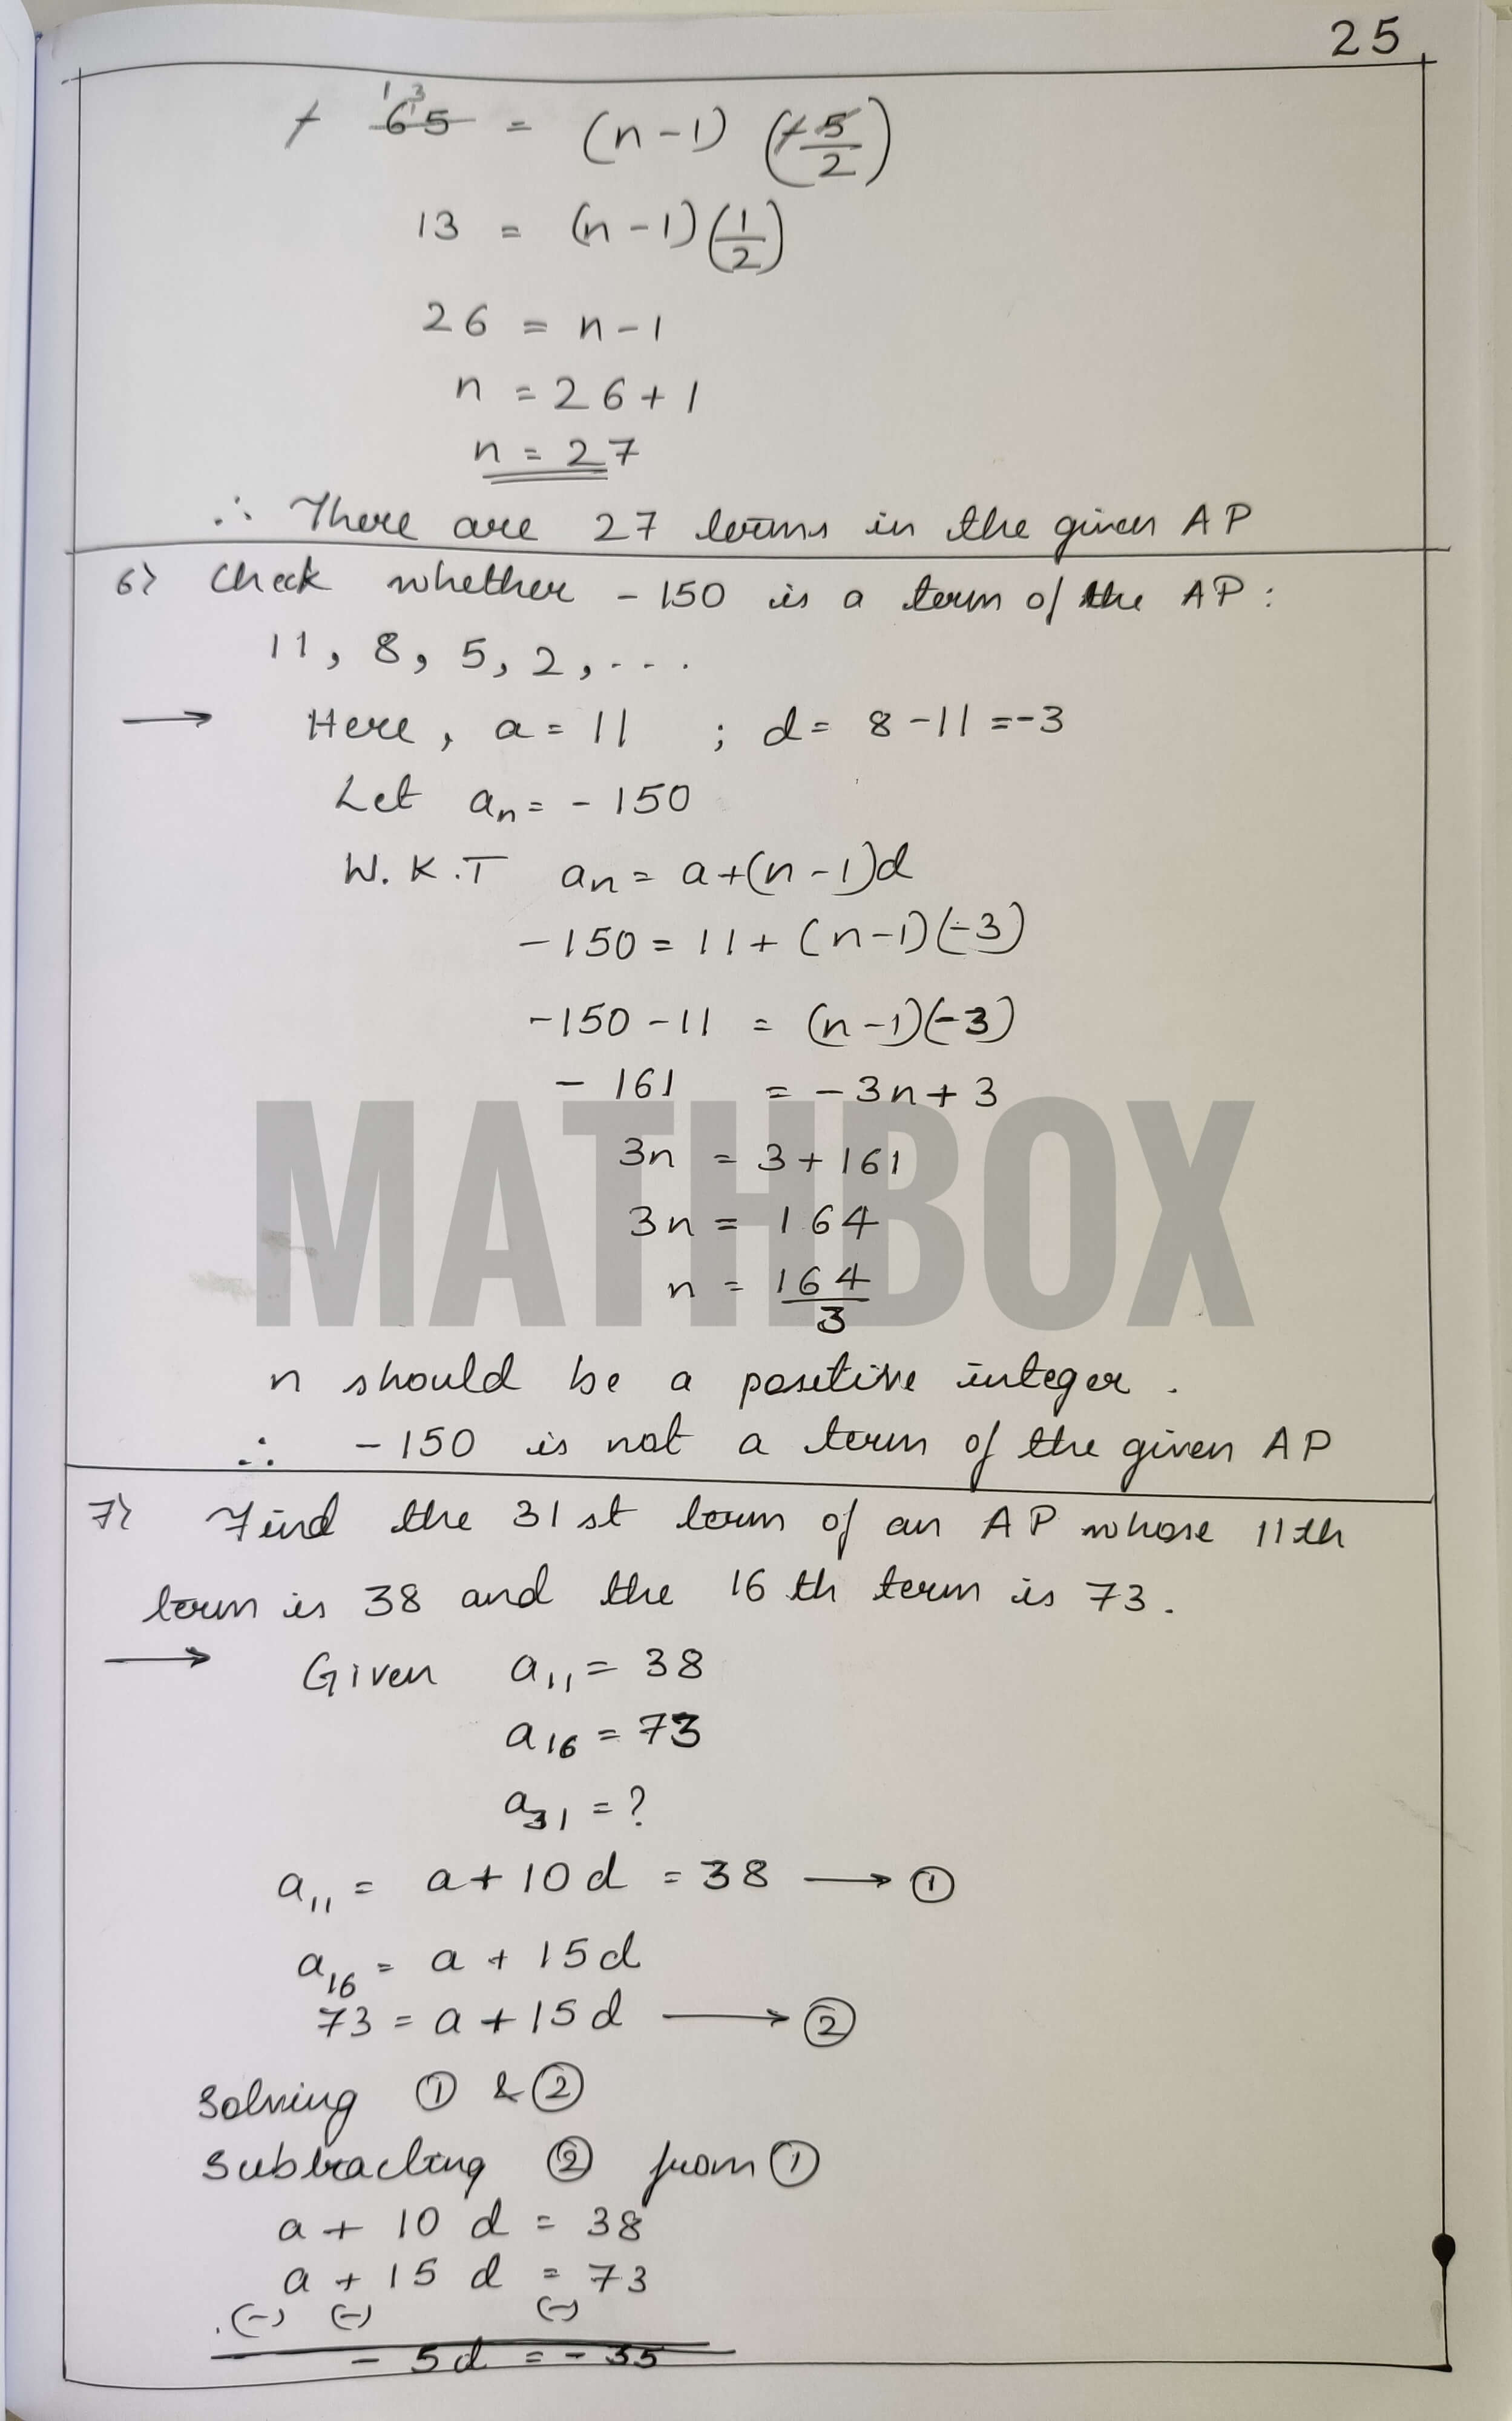 25
- 65 = (n-1) (-5/2)
13
13 = (n-1)(1/2)
26 = n-1
n = 26+1
n = 27
∴ There are 27 terms in the given AP
6) Check whether -150 is a term of the AP:
11, 8, 5, 2, ...
→ Here, a = 11 ; d = 8-11 = -3
Let aₙ = -150
W.K.T aₙ = a+(n-1)d
-150 = 11+(n-1)(-3)
-150-11 = (n-1)(-3)
-161 = -3n+3
3n = 3+161
3n = 164
n = 164/3
MATHBOX
n should be a positive integer.
∴ -150 is not a term of the given AP
7) Find the 31st term of an AP whose 11th
term is 38 and the 16th term is 73.
→ Given a₁₁ = 38
a₁₆ = 73
a₃₁ = ?
a₁₁ = a+10d = 38 → ①
a₁₆ = a+15d
73 = a+15d → ②
Solving ① & ②
Subtracting ② from ①
a + 10 d = 38
a + 15 d = 73
(-) (-) (-)
-5d = -35